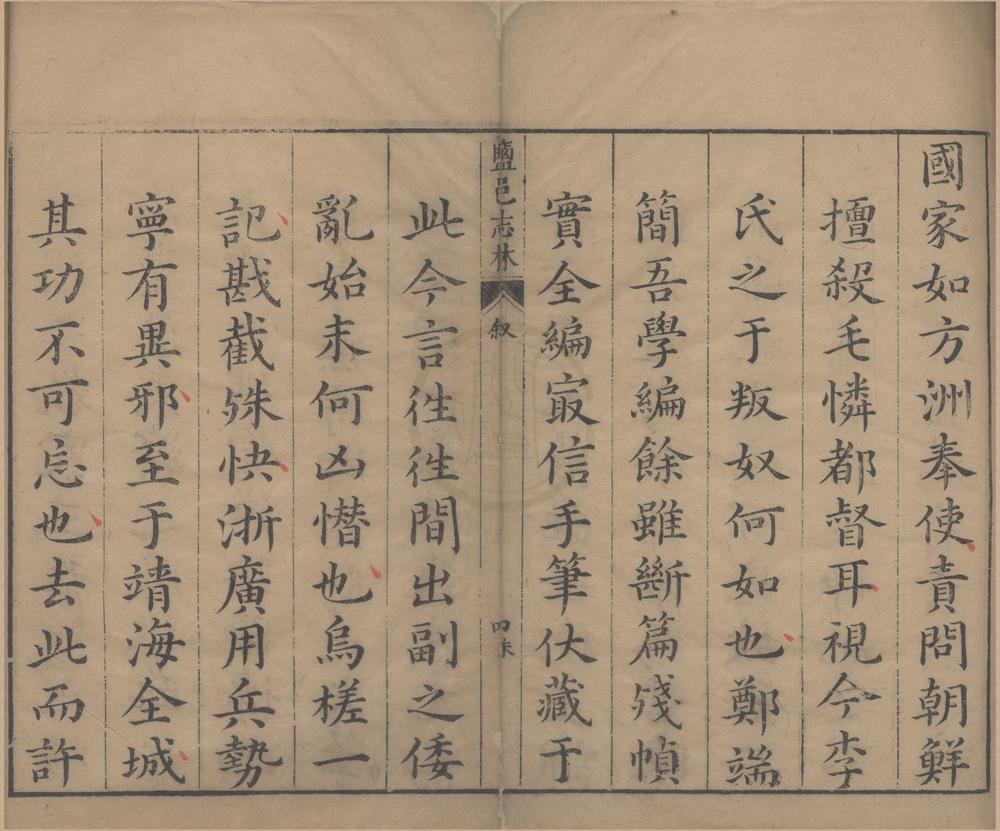 國家如方洲奉使責問朝鮮
擅殺毛憐都督耳視今李
氏之于叛奴何如也鄭端
簡吾學編餘雖斷篇殘幀
實全編㝡信手筆伏藏于
鹽邑志林
叙
四末
此今言徃徃間出副之倭
亂始末何凶憯也烏槎一
記戡截殊快浙廣用兵勢
寧有異邪至于靖海全城
其功不可忘也去此而許